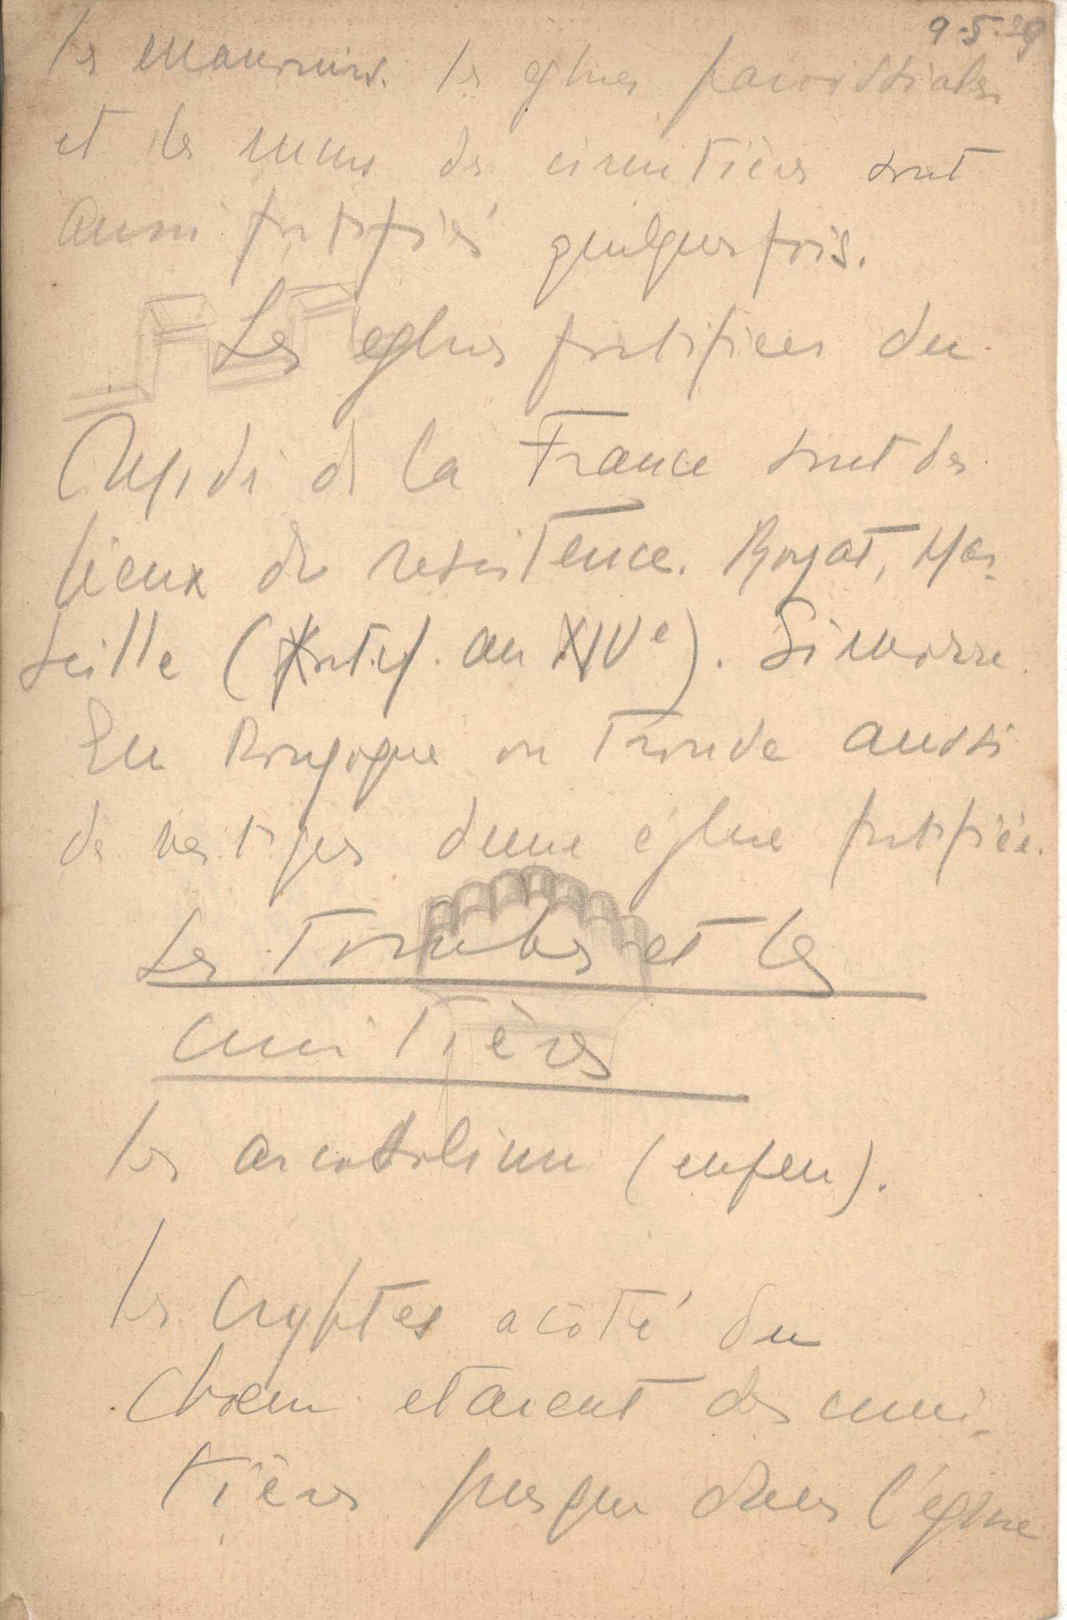 9.5.29
les les eglises paroissiales
et les murs de cimitières sont
aussi fortifiés quelques fois.
Les eglises fortifiees du
midi de la France sont des
lieux de resistence. Royat, Mar-
seille (fortif. au XIVe). Simorre.
En on trouve aussi
de vestiges d'une église fortifiée.
Les Tombes et les
cimitières
les arcosolium (enfeu).
les cryptes a coté du
choeur etaient des cimi-
tières presque dans l'église